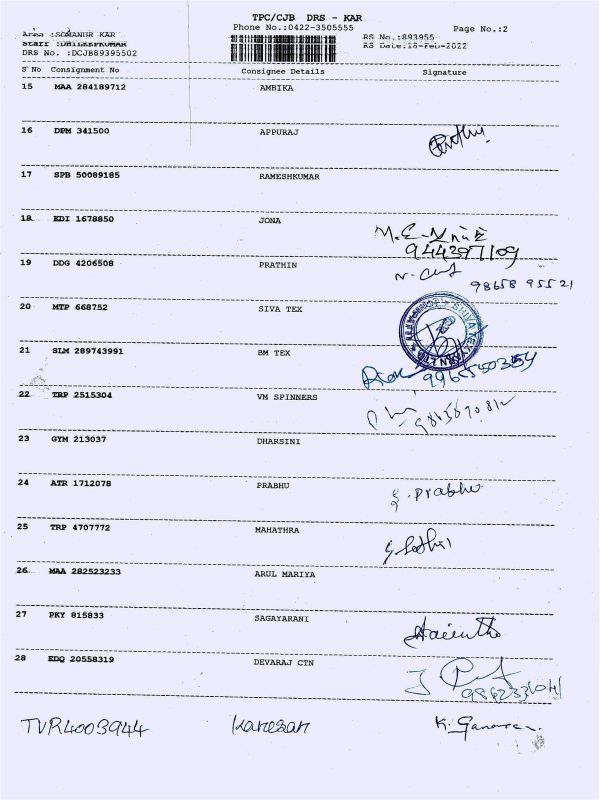 TPC/CJB DRS - KAR
Phone No.:0422-3505555 Page No.:2
Area :SOMANUR KAR RS No.:893955
Staff :DHILEEPKUMAR RS Date:18-Feb-2022
DRS No. :DCJB89395502
S No Consignment No Consignee Details Signature
15 MAA 284189712 AMBIKA
16 DPM 341500 APPURAJ
17 SPB 50089185 RAMESHKUMAR
18 KDI 1678850 JONA
944397109
19 DDG 4206508 PRATHIN
98658 95521
20 MTP 668752 SIVA TEX
21 SLM 289743991 BM TEX
22 TRP 2515304 VM SPINNERS
23 GYM 213037 DHARSINI
24 ATR 1712078 PRABHU
Prabhu
25 TRP 4707772 MAHATHRA
26 MAA 282523233 ARUL MARIYA
27 PKY 815833 SAGAYARANI
28 EDQ 20558319 DEVARAJ CTN
TVR4003944 Kanesan K. Ganesan